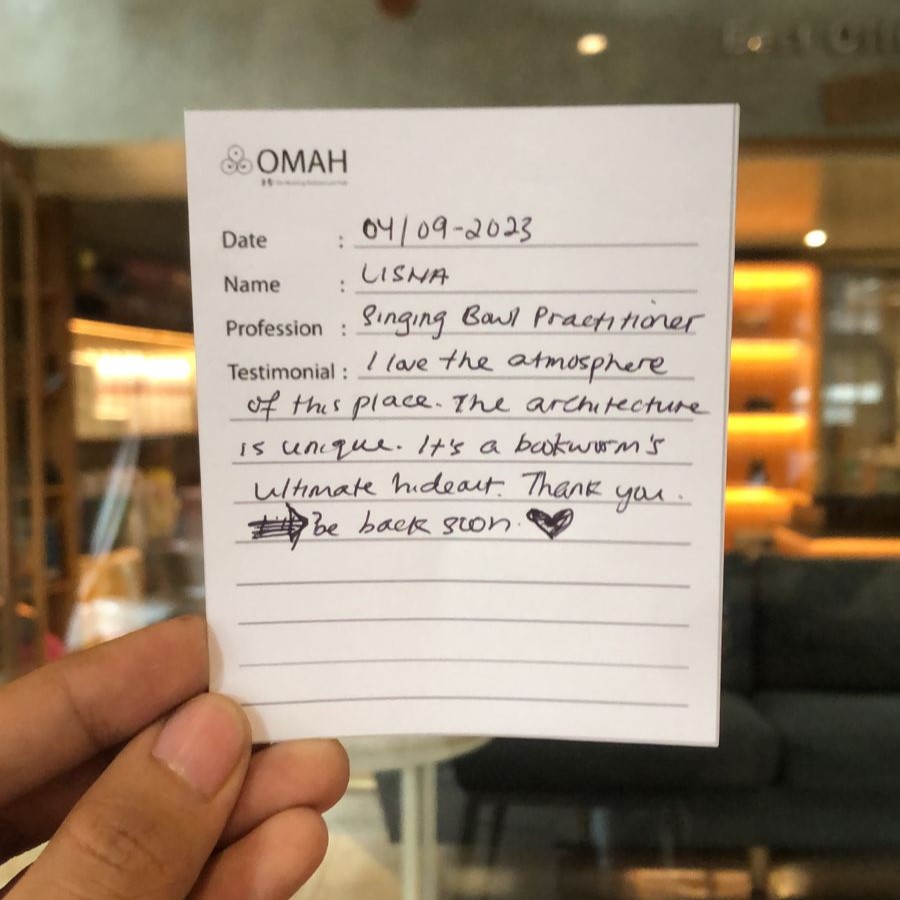 OMAH
Date : 04/09-2023
Name : LISNA
Profession : Singing Bowl Practitioner
Testimonial : I love the atmosphere
of this place. The architecture
is unique. It's a bookworm's
ultimate hideout. Thank you.
be back soon.